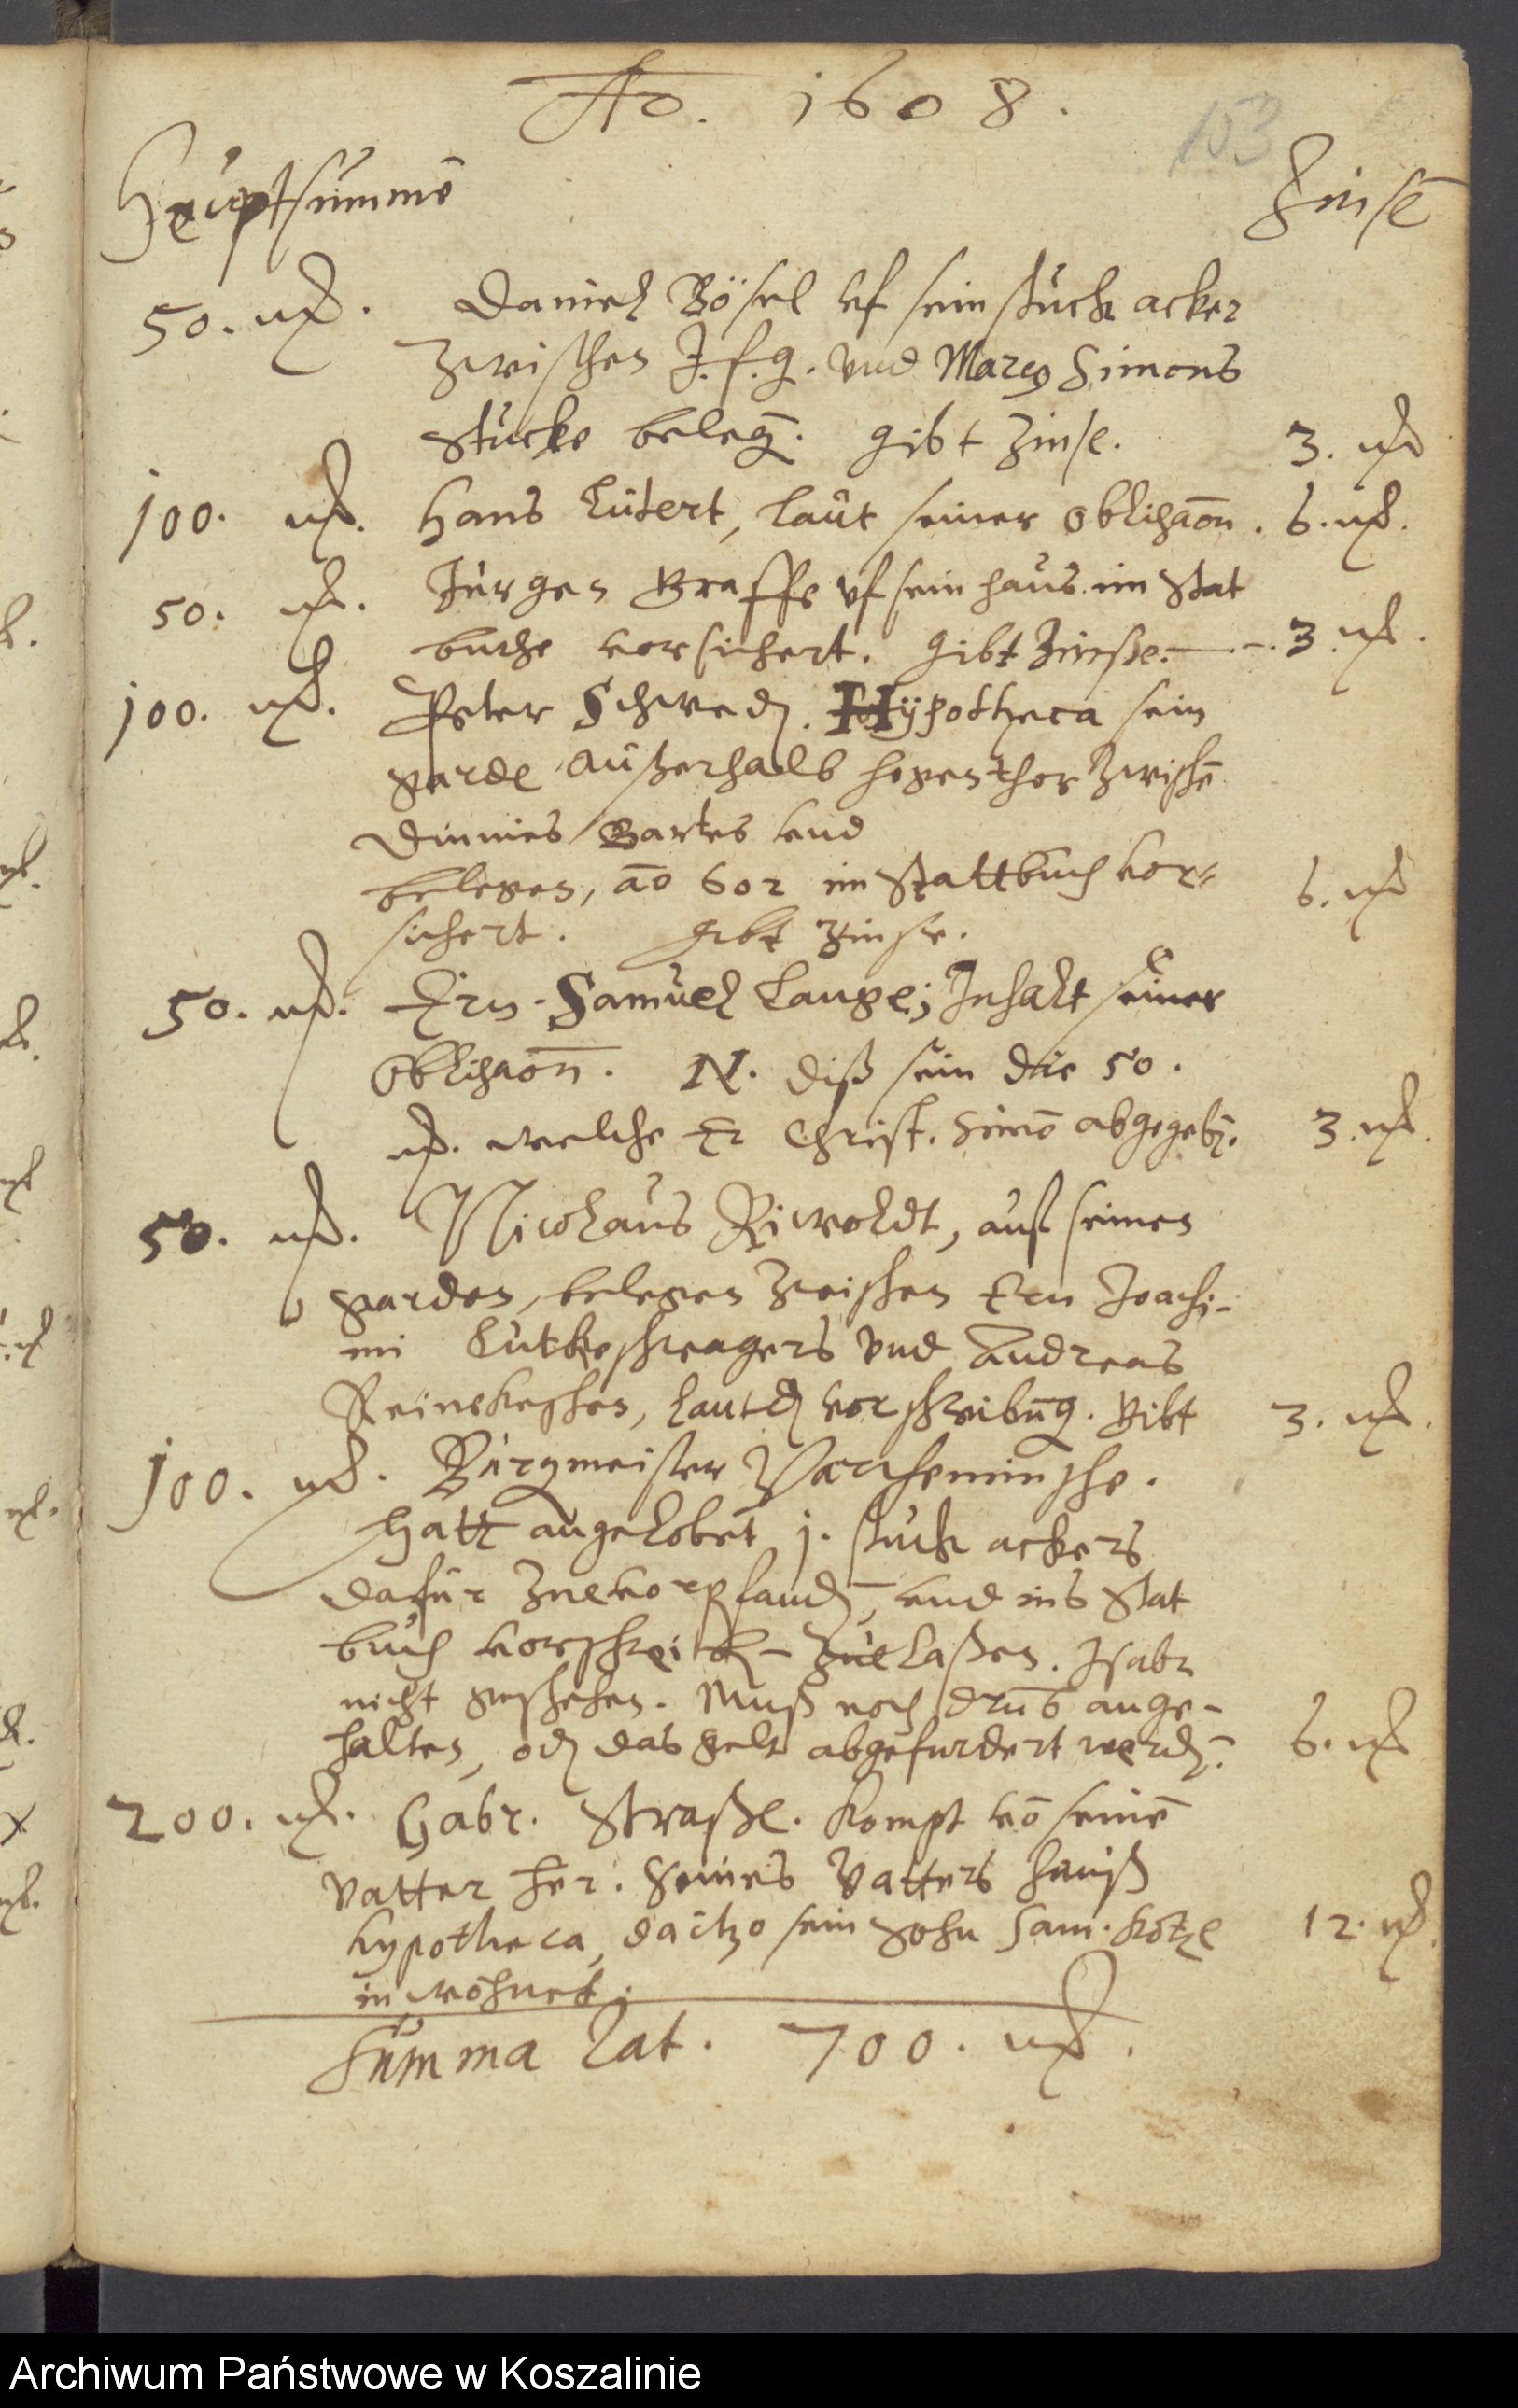 Ao. 1608.
153
Hauptsumme Zinse
50. mk. Daniel Bösel uf sein stück acker
zwischen J. f. g. vnd Marcg Simons
stücke beleḡ. gibt Zinse. 3. mk
100. mk. Hans Lütert, laut seiner obligaōn. 6. mk.
50. mk. Jürgen Graffe vf sein haus im Stat
buche vorsichert. Gibt Zinße. 3. mk.
100. mk. Peter Schwed. Hÿpotheca sein
garde außerhalb hogenthor zwischē
Dinnies Bartes vnd
belegen, ao 602 im Stattbuch vor-
sichert. gibt Zinse. 6. mk
50. mk. Ern. Samuel Lange; Inhalt seiner
Obligaōn. N. diß sein die 50.
mk. welche Er Christ. Simō abgegebē. 3. mk.
50. mk. Nicolaus Riwoldt, auß seinen
garden, belegen zwischen Ern Joachi-
mi Lütkeschwagers vnd Andreas
Reineken, laut d vorschreibūg. gibt 3. mk.
100. mk. Bürgmeister
Hatt angelobet j. stück ackers
dafür zue vorpfandē, vnd ins Stat
buch vorschreibē zue laßen. Is abr
nicht geschehen. Muß noch drūb ange-
halten, od das gelt abgefurdert werdē. 6. mk
200. mk. Gabr. Straße. Kompt vō seinē
Vatter her. Seines Vatters hauß
hypotheca, da itzo sein Sohn Sam. Kötze
in wohnet. 12. mk.
Summa Lat. 700. mk.
Archiwum Państwowe w Koszalinie